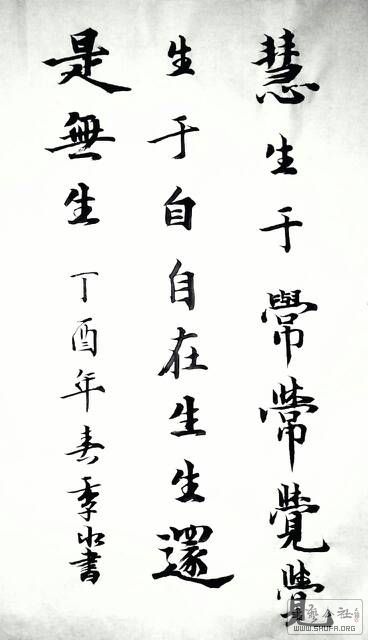 慧生于常常覺覺
生于自自在生生還
是無生 丁酉年春季書
WWW.SHUFA.ORG